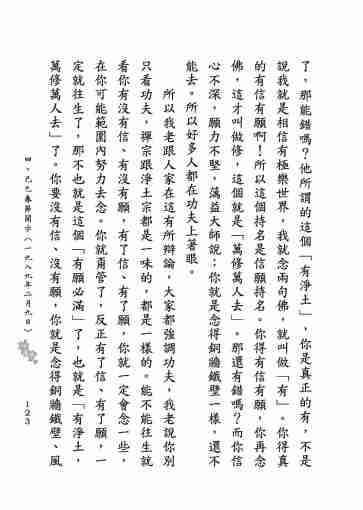 了，那能錯嗎？他所謂的這個「有淨土」，你是真正的有，不是
說我就是相信有極樂世界，我就念兩句佛，就叫做「有」。你得真
的有信有願啊！所以這個持名是信願持名。你得有信有願，你再念
佛，這才叫做修，這個就是「萬修萬人去」。那還有錯嗎？而你信
心不深，願力不堅，蕅益大師說：你就是念得銅牆鐵壁一樣，還不
能去。所以好多人都在功夫上著眼。
所以我老跟人家在這有所辯論，大家都強調功夫，我老說你別
只看功夫，禪宗跟淨土宗都是一味的，都是一樣的。能不能往生就
看你有沒有信、有沒有願，有了信、有了願，你就一定會念一些，
在你可能範圍內努力去念。你就甭管了，反正有了信、有了願，一
定就往生了，那不也就是這個「有願必滿」了，也就是「有淨土，
萬修萬人去」了。你要沒有信、沒有願，你就是念得銅牆鐵壁、風
四、己巳春節開示（一九八九年二月九日）
123